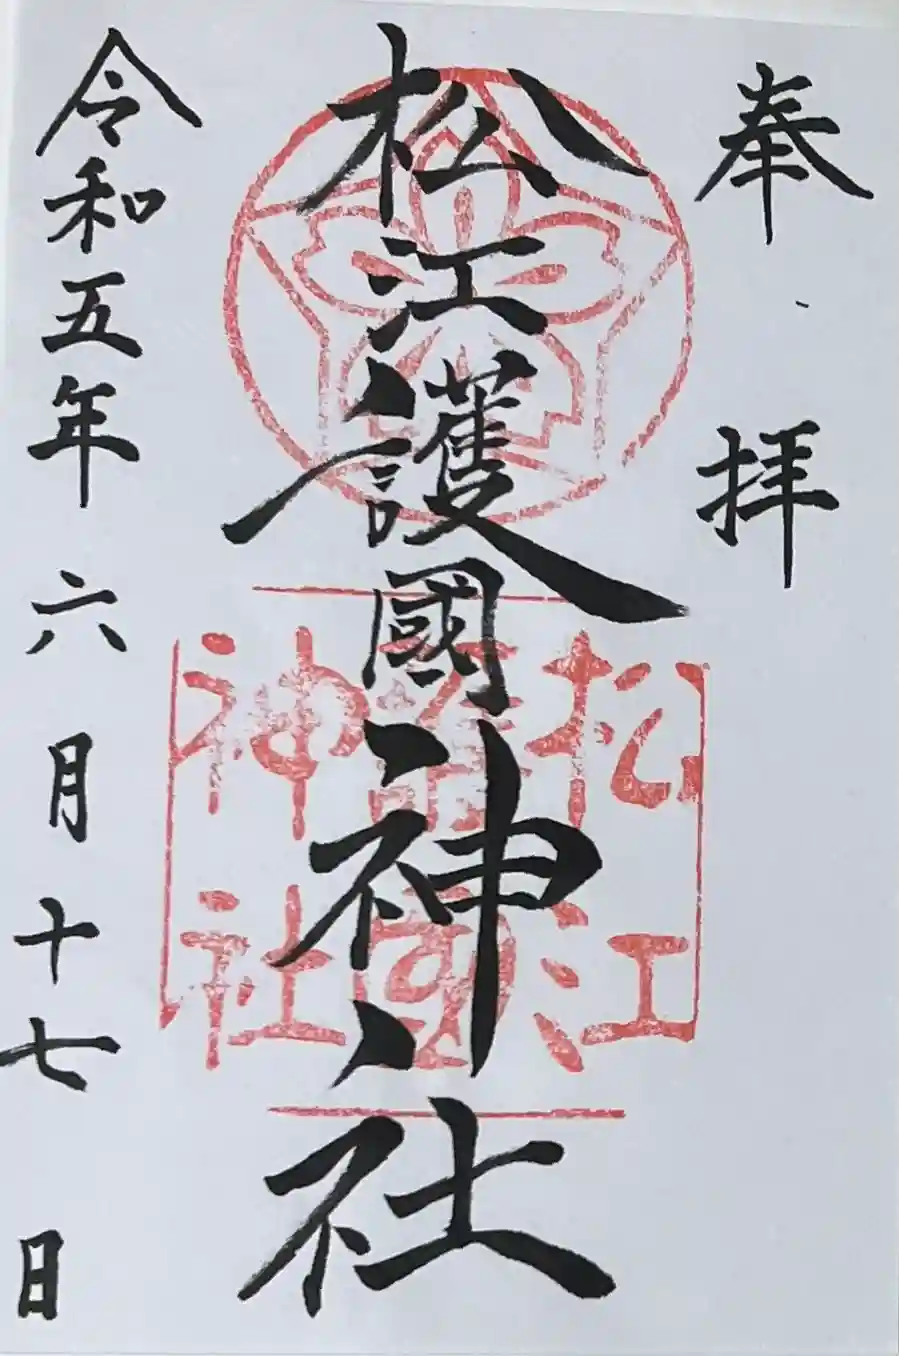 奉拝
松江護國神社
松江
護國
神社
令和五年六月十七日